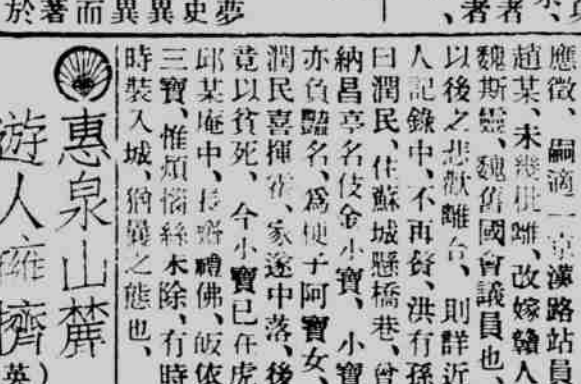 應徵、嗣適一京漢路站員
趙某、未幾仳離、改嫁贛人
魏斯靈、魏舊國會議員也、
以後之悲歡離合、則詳近
人記錄中、不再贅、洪有孫
曰潤民、住蘇城懸橋巷、曾
納昌亭名伎金小寶、小寶
亦負豔名、爲使子阿寶女、
潤民喜揮霍、家遂中落、後
竟以貧死、今小寶已在虎
邱某庵中、長齋禮佛、皈依
三寶、惟煩惱絲未除、有時
時裝入城、猶曩之態也、
惠泉山麓
遊人擁擠
英)
夢
史
異
異
而
著
於
著
者、